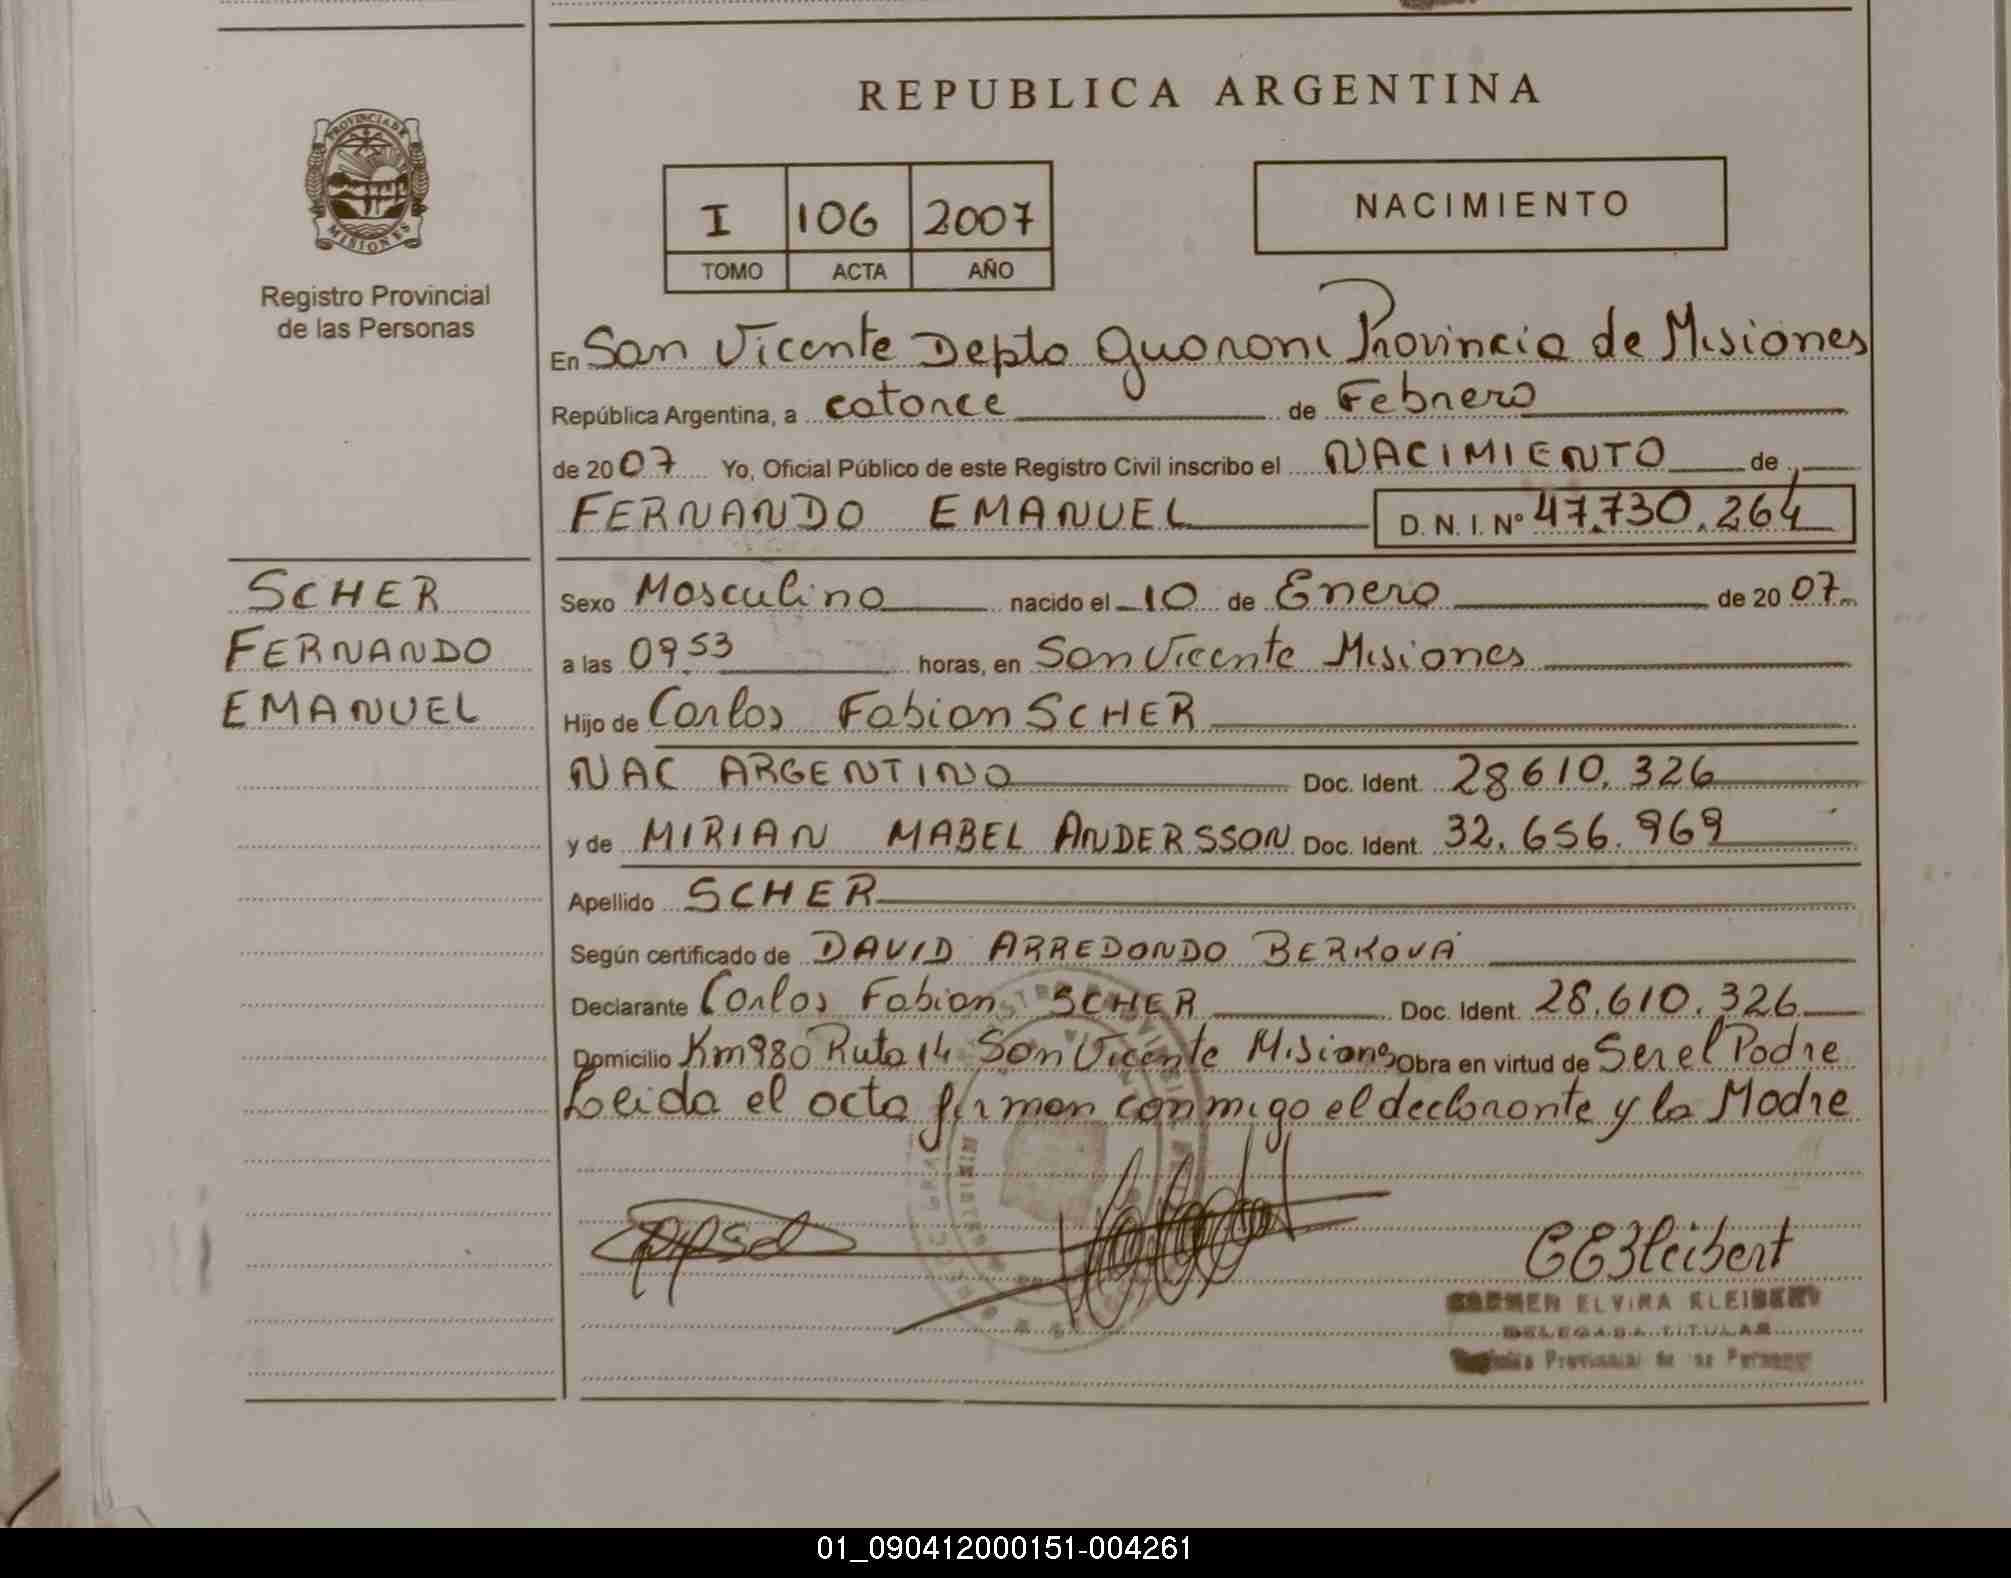 REPUBLICA ARGENTINA
PROVINCIA DE
MISIONES
Registro Provincial
de las Personas
I 106 2007
TOMO ACTA AÑO
NACIMIENTO
En San Vicente Depto Guarani Provincia de Misiones
República Argentina, a catorce de Febrero
de 2007 Yo, Oficial Público de este Registro Civil inscribo el NACIMIENTO de
FERNANDO EMANUEL D. N. I. Nº 47.730.264
SCHER
FERNANDO
EMANUEL
Sexo Masculino nacido el 10 de Enero de 2007
a las 09.53 horas, en San Vicente Misiones
Hijo de Carlos Fabian SCHER
NAC ARGENTINO Doc. Ident. 28610.326
y de MIRIAN MABEL ANDERSSON Doc. Ident. 32.656.969
Apellido SCHER
Según certificado de DAVID ARREDONDO BERKOVA
Declarante Carlos Fabian SCHER Doc. Ident. 28.610.326
Domicilio Km980 Ruta 14 San Vicente Misiones Obra en virtud de Ser el Padre
Leida el acta firman conmigo el declarante y la Madre
CEKleibert
CARMEN ELVIRA KLEIBERT
DELEGADA TITULAR
Registro Provincial de las Personas
01_090412000151-004261